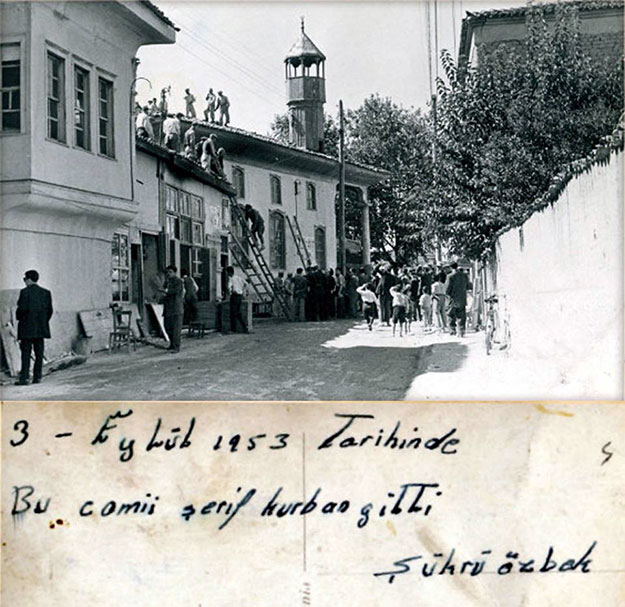 3 - Eylül 1953 Tarihinde
Bu camii şerif kurban gitti
Şükrü özbak